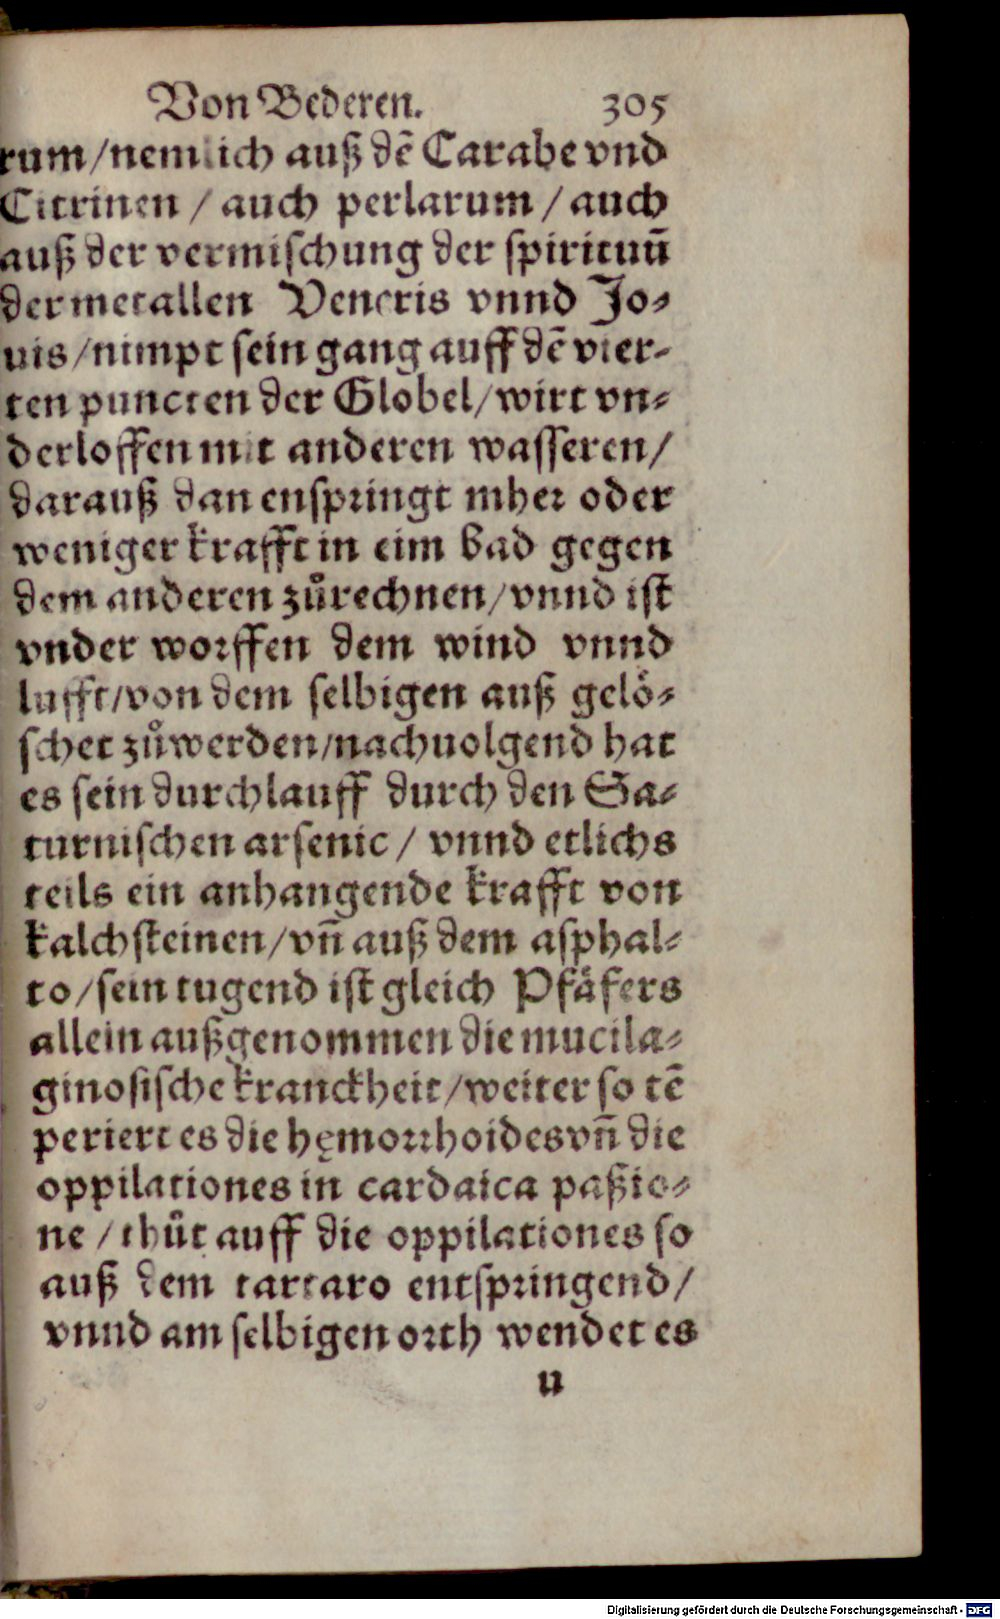 Von Bederen. 305
rum/nemlich auß dẽ Carabe vnd
Citrinen / auch perlarum / auch
auß der vermischung der spirituũ
der metallen Veneris vnnd Jo⸗
uis/nimpt sein gang auff dẽ vier⸗
ten puncten der Globel/wirt vn⸗
derloffen mit anderen wasseren/
darauß dan enspringt mher oder
weniger krafft in eim bad gegen
dem anderen zůrechnen/vnnd ist
vnder worffen dem wind vnnd
lufft/von dem selbigen auß gelö⸗
schet zůwerden/nachuolgend hat
es sein durchlauff durch den Sa⸗
turnischen arsenic / vnnd etlichs
teils ein anhangende krafft von
kalchsteinen/vñ auß dem asphal⸗
to/sein tugend ist gleich Pfäfers
allein außgenommen die mucila⸗
ginosische kranckheit/weiter so tẽ
periert es die hęmorrhoides vñ die
oppilationes in cardaica paßio⸗
ne / thůt auff die oppilationes so
auß dem tartaro entspringend/
vnnd am selbigen orth wendet es
u
Digitalisierung gefördert durch die Deutsche Forschungsgemeinschaft - DFG